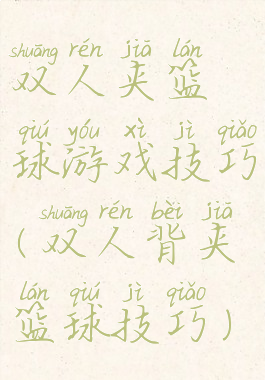 shuāng rén jiā lán
双人夹篮
qiú yóu xì jì qiǎo
球游戏技巧
shuāng rén bèi jiā
(双人背夹
lán qiú jì qiǎo
篮球技巧)